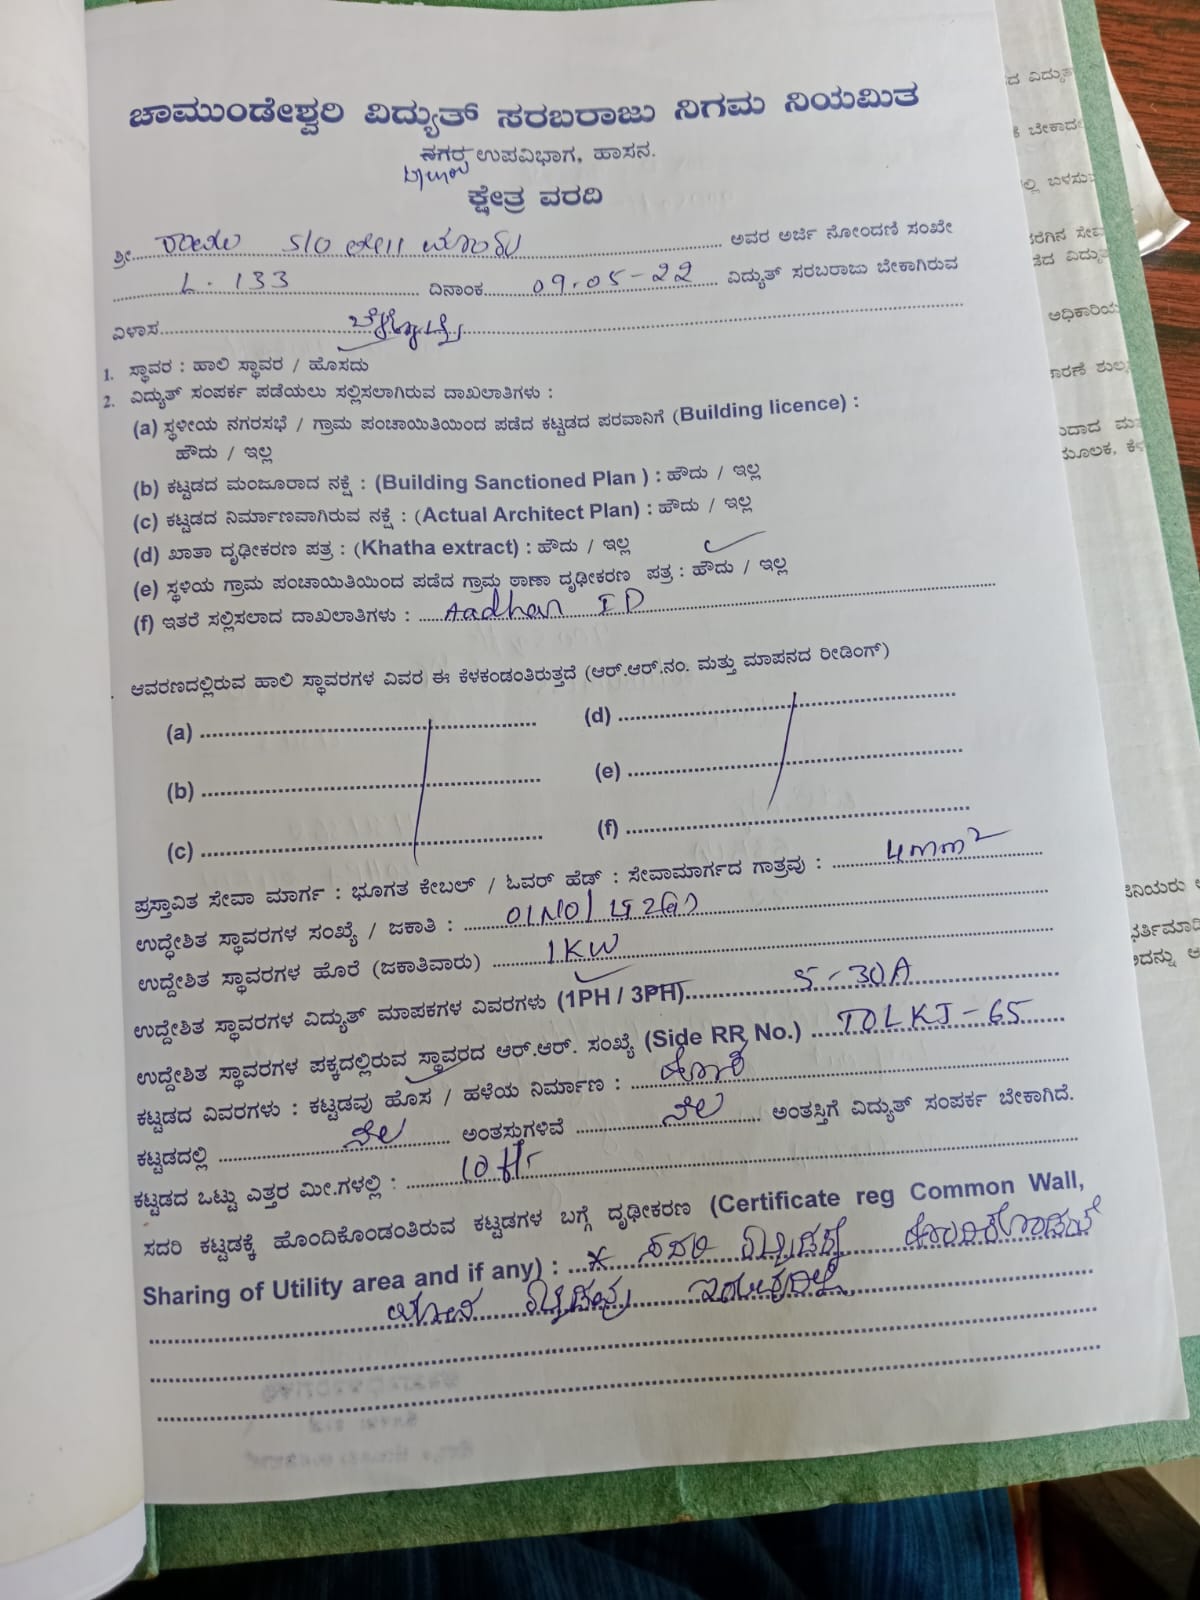 ಚಾಮುಂಡೇಶ್ವರಿ ವಿದ್ಯುತ್ ಸರಬರಾಜು ನಿಗಮ ನಿಯಮಿತ
ನಗರ ಉಪವಿಭಾಗ, ಹಾಸನ.
ಕ್ಷೇತ್ರ ವರದಿ
ಶ್ರೀ. S/O ಅವರ ಅರ್ಜಿ ನೋಂದಣಿ ಸಂಖೇ
L. 133 ದಿನಾಂಕ 09.05-22 ವಿದ್ಯುತ್ ಸರಬರಾಜು ಬೇಕಾಗಿರುವ
ವಿಳಾಸ
1. ಸ್ಥಾವರ : ಹಾಲಿ ಸ್ಥಾವರ / ಹೊಸದು
2. ವಿದ್ಯುತ್ ಸಂಪರ್ಕ ಪಡೆಯಲು ಸಲ್ಲಿಸಲಾಗಿರುವ ದಾಖಲಾತಿಗಳು :
(a) ಸ್ಥಳೀಯ ನಗರಸಭೆ / ಗ್ರಾಮ ಪಂಚಾಯಿತಿಯಿಂದ ಪಡೆದ ಕಟ್ಟಡದ ಪರವಾನಿಗೆ (Building licence) :
ಹೌದು / ಇಲ್ಲ
(b) ಕಟ್ಟಡದ ಮಂಜೂರಾದ ನಕ್ಷೆ : (Building Sanctioned Plan ) : ಹೌದು / ಇಲ್ಲ
(c) ಕಟ್ಟಡದ ನಿರ್ಮಾಣವಾಗಿರುವ ನಕ್ಷೆ : (Actual Architect Plan) : ಹೌದು / ಇಲ್ಲ
(d) ಖಾತಾ ದೃಢೀಕರಣ ಪತ್ರ : (Khatha extract) : ಹೌದು / ಇಲ್ಲ
(e) ಸ್ಥಳಿಯ ಗ್ರಾಮ ಪಂಚಾಯಿತಿಯಿಂದ ಪಡೆದ ಗ್ರಾಮ ಠಾಣಾ ದೃಢೀಕರಣ ಪತ್ರ : ಹೌದು / ಇಲ್ಲ
(f) ಇತರೆ ಸಲ್ಲಿಸಲಾದ ದಾಖಲಾತಿಗಳು : Aadhar ID
ಆವರಣದಲ್ಲಿರುವ ಹಾಲಿ ಸ್ಥಾವರಗಳ ವಿವರ ಈ ಕೆಳಕಂಡಂತಿರುತ್ತದೆ (ಆರ್.ಆರ್.ನಂ. ಮತ್ತು ಮಾಪನದ ರೀಡಿಂಗ್)
(a) (d)
(b) (e)
(c) (f)
ಪ್ರಸ್ತಾವಿತ ಸೇವಾ ಮಾರ್ಗ : ಭೂಗತ ಕೇಬಲ್ / ಓವರ್ ಹೆಡ್ : ಸೇವಾಮಾರ್ಗದ ಗಾತ್ರವು : 4mm²
ಉದ್ಧೇಶಿತ ಸ್ಥಾವರಗಳ ಸಂಖ್ಯೆ / ಜಕಾತಿ : 01NO/
ಉದ್ದೇಶಿತ ಸ್ಥಾವರಗಳ ಹೊರೆ (ಜಕಾತಿವಾರು) 1KW
ಉದ್ದೇಶಿತ ಸ್ಥಾವರಗಳ ವಿದ್ಯುತ್ ಮಾಪಕಗಳ ವಿವರಗಳು (1PH / 3PH) 5-30A
ಉದ್ದೇಶಿತ ಸ್ಥಾವರಗಳ ಪಕ್ಕದಲ್ಲಿರುವ ಸ್ಥಾವರದ ಆರ್.ಆರ್. ಸಂಖ್ಯೆ (Side RR No.) TOLKJ-65
ಕಟ್ಟಡದ ವಿವರಗಳು : ಕಟ್ಟಡವು ಹೊಸ / ಹಳೆಯ ನಿರ್ಮಾಣ :
ಕಟ್ಟಡದಲ್ಲಿ ನೆಲ ಅಂತಸ್ತುಗಳಿವೆ ನೆಲ ಅಂತಸ್ತಿಗೆ ವಿದ್ಯುತ್ ಸಂಪರ್ಕ ಬೇಕಾಗಿದೆ.
ಕಟ್ಟಡದ ಒಟ್ಟು ಎತ್ತರ ಮೀ.ಗಳಲ್ಲಿ : 10
ಸದರಿ ಕಟ್ಟಡಕ್ಕೆ ಹೊಂದಿಕೊಂಡಂತಿರುವ ಕಟ್ಟಡಗಳ ಬಗ್ಗೆ ದೃಢೀಕರಣ (Certificate reg Common Wall,
Sharing of Utility area and if any) : * ಸದರಿ ಕಟ್ಟಡಕ್ಕೆ ಹೊಂದಿಕೊಂಡಂತೆ
ಯಾವ ಕಟ್ಟಡವು ಇರುವುದಿಲ್ಲ